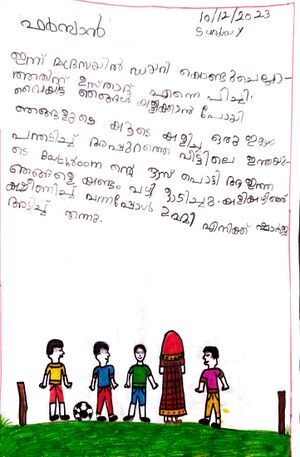 ഫർസാൻ
10/12/2023
Sunday
ഇന്ന് മദ്രസയിൽ ഡയറി കൊണ്ടുചെല്ലാ-
ത്തതിന് ഉസ്താദ് എന്നെ പിച്ചി.
വൈകുന്നേരം ഞങ്ങൾ കളിക്കാൻ പോയി
ഞങ്ങളുടെ കൂടെ കളിച്ച ഒരു ഇത്ത
പന്തടിച്ച് അപ്പുറത്തെ വീട്ടിലെ ഇത്തയു-
ടെ Bathroom ന്റെ ഗ്ലാസ് പൊട്ടി ആ ഇത്ത
ഞങ്ങളെ കണ്ടം വഴി ഓടിച്ചു. കളികഴിഞ്ഞ്
ക്ഷീണിച്ച് വന്നപ്പോൾ ഉമ്മി എനിക്ക് ഷാർജ
അടിച്ച് തന്നു.